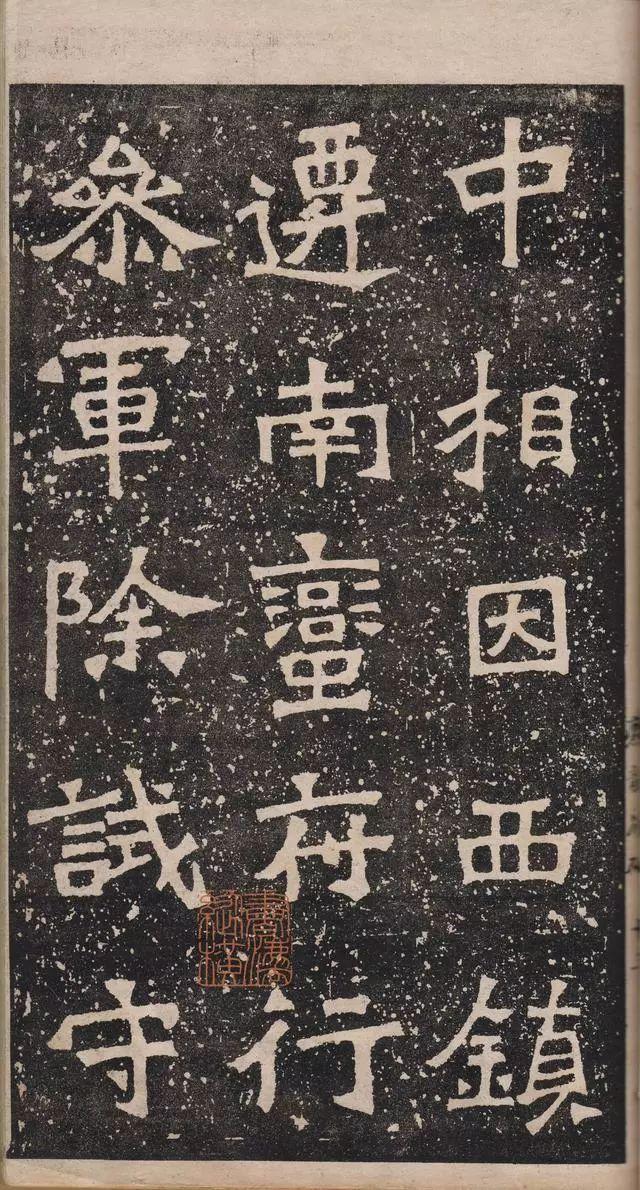 中相因西鎮
遷南蠻府行
叅軍除試守